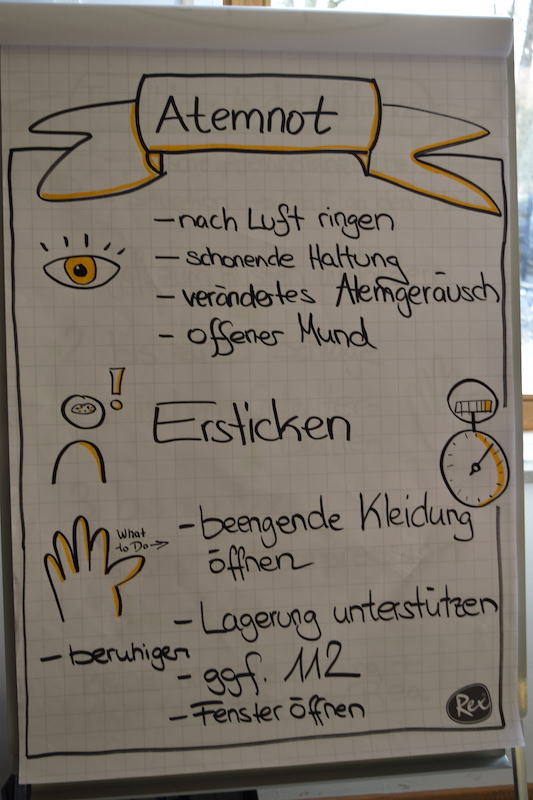 Atemnot
- nach Luft ringen
- schonende Haltung
- verändertes Atemgeräusch
- offener Mund
!
Ersticken
What
to Do →
- beengende Kleidung
öffnen
- Lagerung unterstützen
- beruhigen
- ggf. 112
- Fenster öffnen
Rex